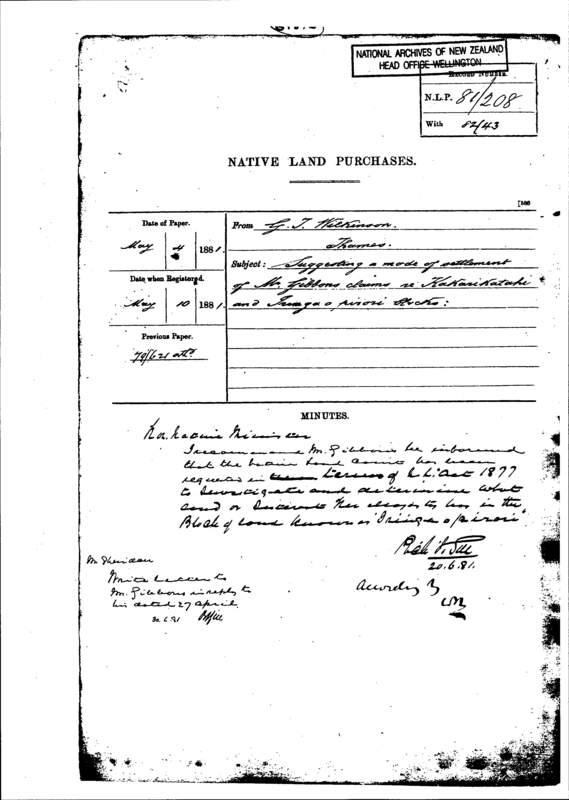 NATIONAL ARCHIVES OF NEW ZEALAND
HEAD OFFICE WELLINGTON
Record Number.
N.L.P. 81/208
With 82/43
NATIVE LAND PURCHASES.
Date of Paper.
May 4 1881.
Date when Registered.
May 10 1881.
Previous Paper.
From G. T. Wilkinson.
Thames.
Subject: Suggesting a mode of settlement
of Mr Gibbons claims re Kakarikatahi
and
MINUTES.
Hon Native Minister
I recommend Mr. Gibbons be informed
that the Native Land Court has been
requested in terms of Act 1877
to investigate and determine what
or Interest he in the
Block of land known as
20.6.81.
Mr Sheridan
Write letter to
Mr. Gibbons in reply to
his dated 27 April.
30.6.81